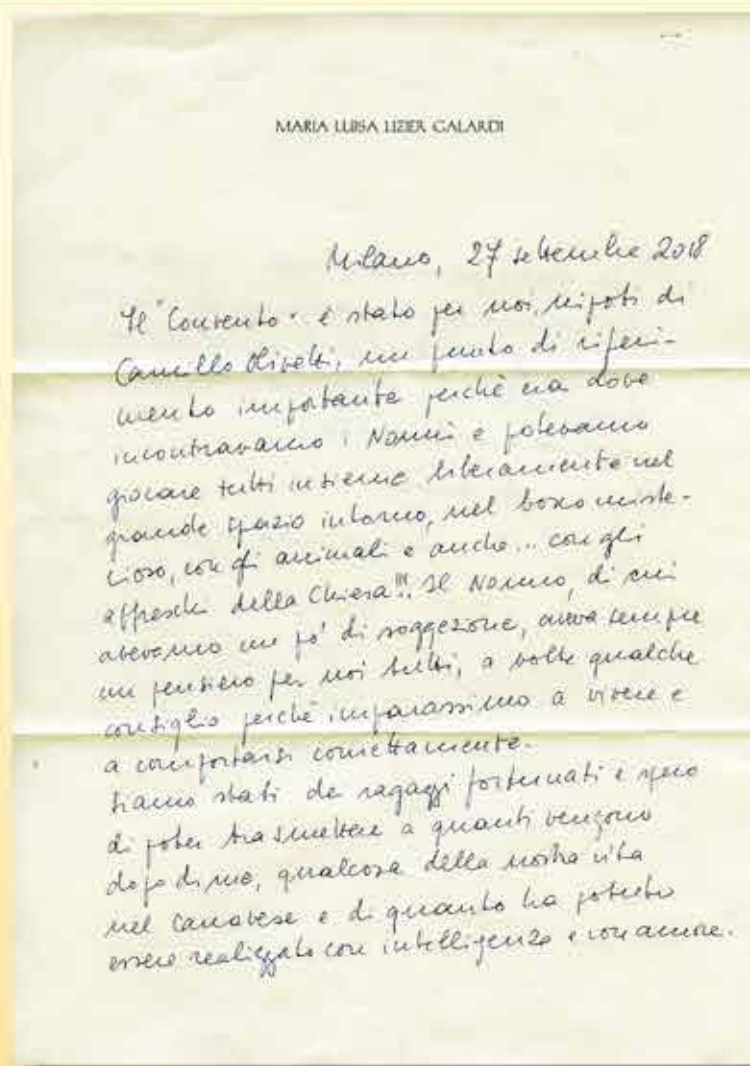 MARIA LUISA LIZIER GALARDI
Milano, 27 settembre 2018
Il "Convento" è stato per noi, nipoti di
Camillo Olivetti, un punto di riferi-
mento importante perchè era dove
incontravamo i Nonni e potevamo
giocare tutti insieme liberamente nel
grande spazio intorno, nel bosco miste-
rioso, con gli animali e anche... con gli
affreschi della Chiesa!!! Il Nonno, di cui
avevamo un pò di soggezione, aveva sempre
un pensiero per noi tutti, a volte qualche
consiglio perchè imparassimo a vivere e
a comportarsi correttamente.
Siamo stati dei ragazzi fortunati e spero
di poter trasmettere a quanti vengono
dopo di me, qualcosa della nostra vita
nel Canavese e di quanto ha potuto
essere realizzato con intelligenza e con amore.